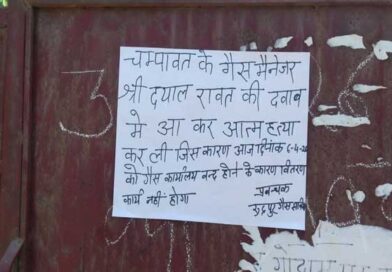 3
चम्पावत के गैस मैनेजर
श्री दयाल रावत की दवाब
मे आ कर आत्महत्या
कर ली जिस कारण आज दिनांक 6-4-26
को गैस कार्यालय बन्द होने के कारण वितरण
कार्य नहीं होगा
प्रबन्धक
गैस